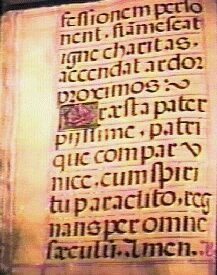 fessionem perſo
nent, flameſcat
igne charitas,
accendat ardor
proximos :~
Præſta pater
pijſſime, patri
que compar v
nice, cum ſpiri
tu paraclito, reg
nans per omne
ſæculū. Amen.